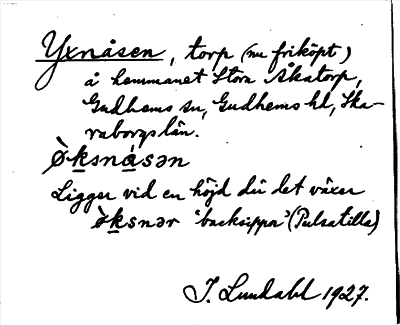 Yxnåsen, torp (nu friköpt)
å hemmanet Stora Åkatorp,
Gudhems sn, Gudhems hd, Ska-
raborgs län.
ø̀ksnásən
Ligger vid en höjd där det växer
ø̀ksnər 'backsippa' (Pulsatilla)
I. Lundahl 1927.